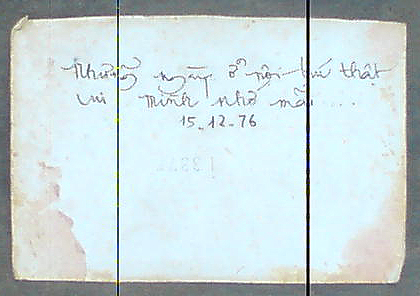 Những ngày ở nội trú thật
vui mình nhớ mãi ...
15.12.76